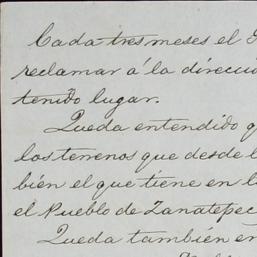 Cada tres meses el
reclamar á la direcció
tenido lugar.
Queda entendido q
los terrenos que desde l
bién el que tiene en l
el Pueblo de Zanatepec
Queda también en